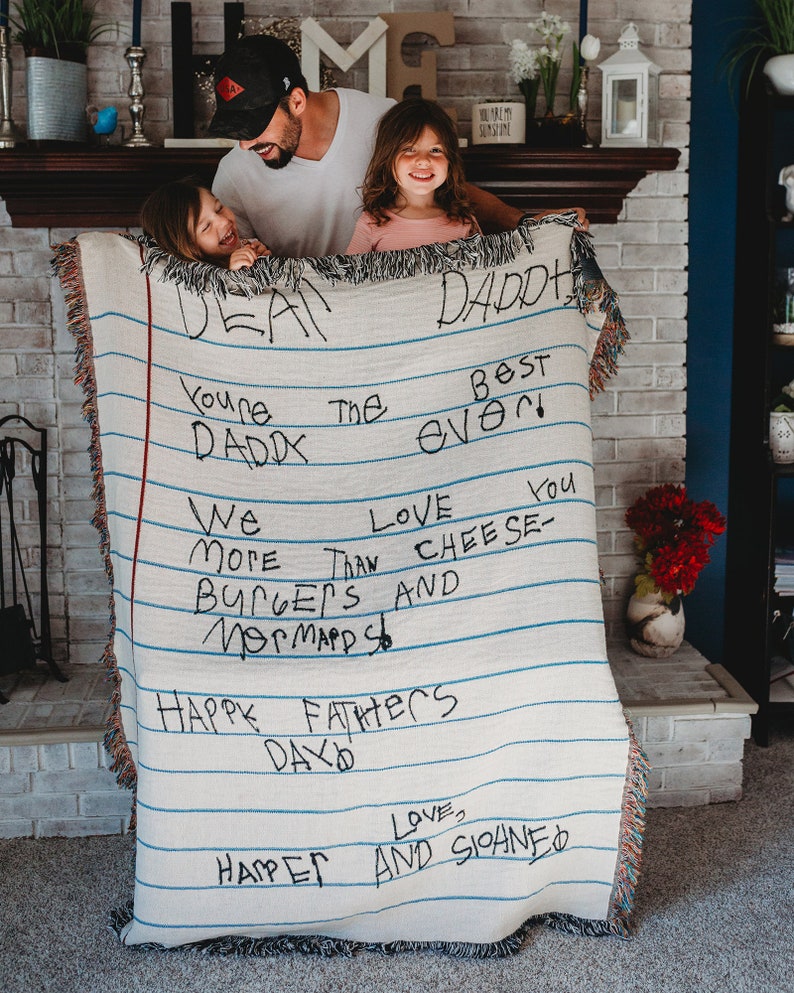 HOME
YOU ARE MY
SUNSHINE
DEAr DADDY,
YoUre THe BesT
DADDY eVer!
We LOVE YOU
MORE THAN CHEESE-
BUrGErS AND
MerMAPDS!
HAPPY FATHErS
DAY!
LOVE,
HArPEr AND SIOHNE!